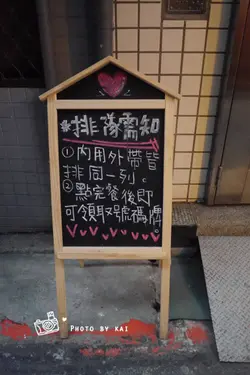 *排隊需知
①內用外帶皆
排同一列。
②點完餐後即
可領取號碼牌。
PHOTO BY KAI